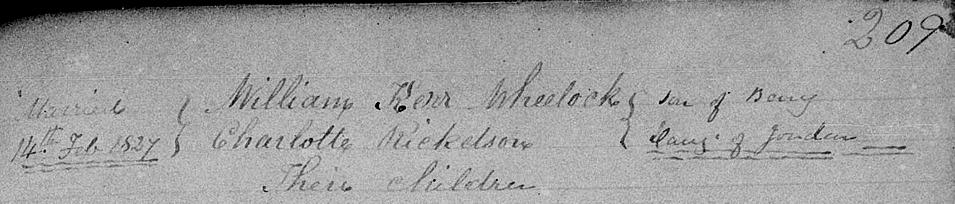 209
Married { William Kerr Wheelock { Son of Benj
14th Feb 1827 Charlotte Rickelson Daug of Jordan
Their children